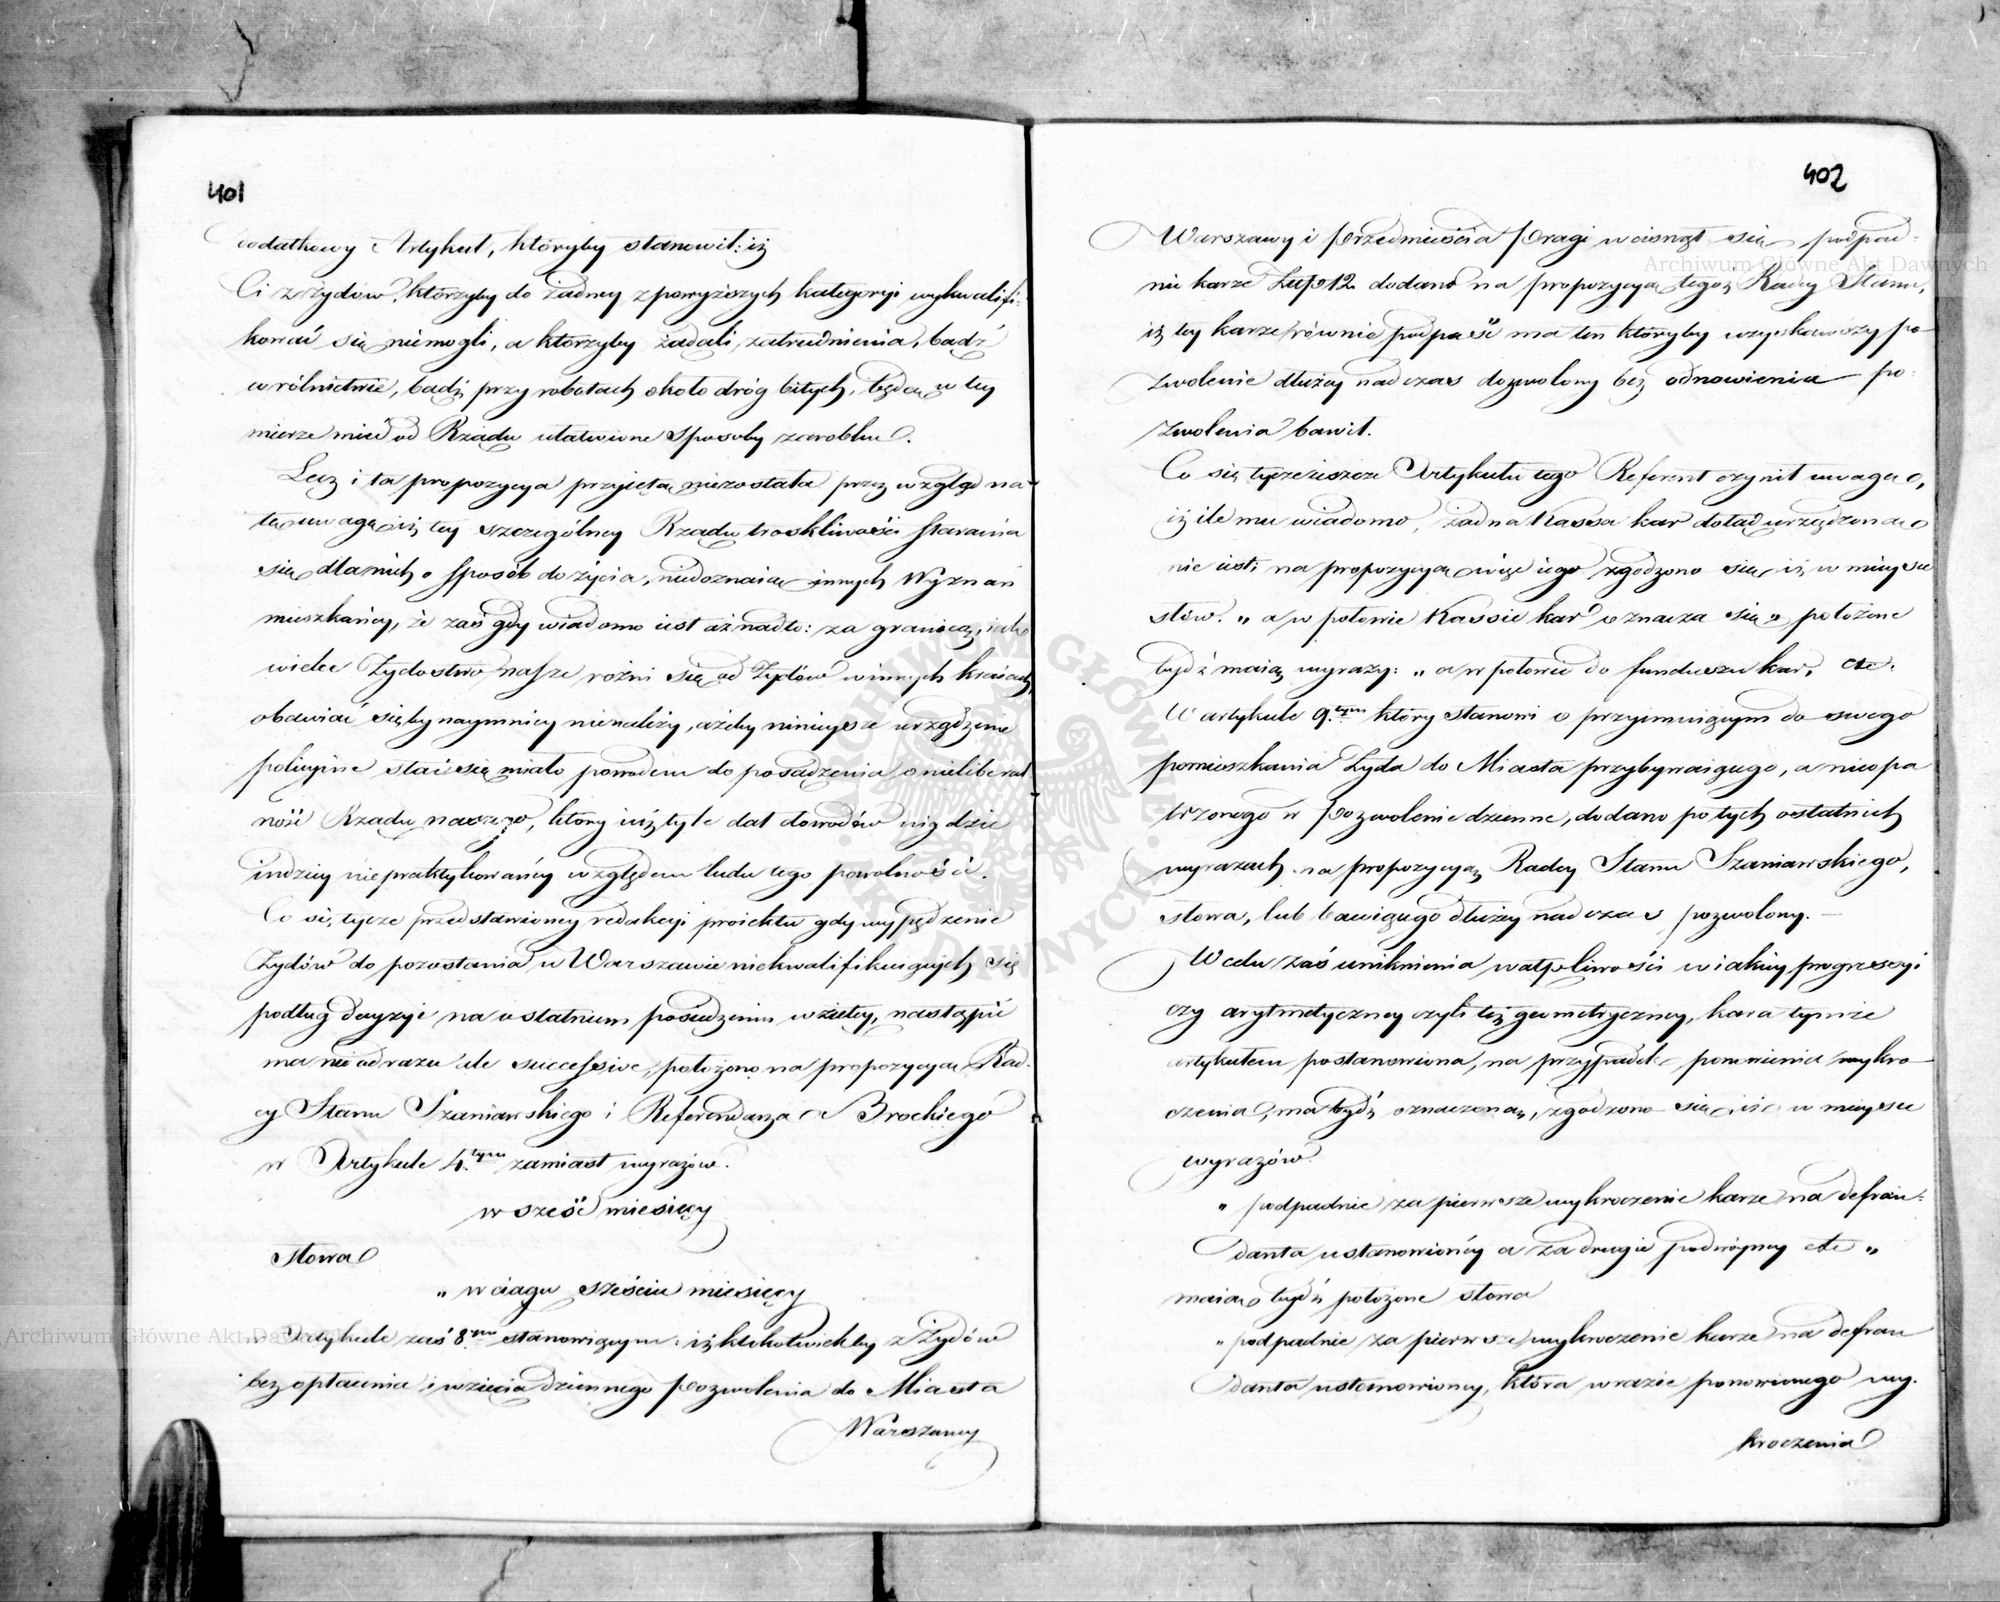 401
dodatkowy Artykuł, któryby stanowił: iż
Ci z Żydów, którzyby do żadney z powyższych kategoryi wykwalifi-
kować się niemogli, a którzyby żądali zatrudnienia, bądź
w rólnictwie, bądź przy robotach około dróg bitych, będą w tey
mierze mieć od Rządu ułatwione sposoby zarobku.
Lecz i ta propozycya przyiętą niezostała przez wzgląd na
tę uwagę iż tey szczególney Rządu troskliwości starania
się dla nich o sposób do życia, niedoznaią innych Wyznań
mieszkańcy, że zaś gdy wiadomo iest aż nadto: za granicą, iak
wielce Żydostwo nasze różni się od Żydów w innych kraiach,
obawiać się bynaymniey nienależy, ażeby ninieysze urządzenie
policyine stać się miało powodem do posądzenia o nieliberal
ność Rządu naszego, który iuż tyle dał dowodów nigdzie
indziey niepraktykowańey względem ludu tego powolności.
Co się tycze przedstawioney redakcyi proiektu gdy wypędzenie
Żydów do pozostania w Warszawie niekwalifikuiących się
podług decyzyi na ostatniem posiedzeniu wziętey, nastąpić
ma nie od razu ale successive, położono na propozycyą Rad-
cy Stanu Szaniawskiego i Referendarza Brockiego
w Artykule 4.tym zamiast wyrazów.
w sześć miesięcy
słowa
„ w ciągu sześciu miesięcy
Artykule zaś 8.ym stanowiącym: iż ktokolwiekby z Żydów
bez opłacenia i wzięcia dziennego pozwolenia do Miasta
Warszawy
402
Warszawy i przedmieścia Pragi wcisnął się podpad-
nie karze Złp 12 dodano na propozycyą tegoż Radcy Stanu,
iż tey karze równie podpaść ma ten któryby uzyskawszy po-
zwolenie dłużey nad czas dozwolony bez odnowienia po-
zwolenia bawił.
Co się tycze ieszcze Artykułu tego Referent czynił uwagę,
iż ile mu wiadomo, żadna Kassa kar dotąd urządzoną
nie iest; na propozycyą więc iego zgodzono się iż w mieysce
słów. „ a w połowie Kassie kar oznacza się „ położone
bydź maią wyrazy: „ a w połowie do funduszu kar, etc.
W artykule 9.tym który stanowi o przyimuiącym do swego
pomieszkania Żyda do Miasta przybywaiącego, a nieopa
trzonego w pozwolenie dzienne, dodano po tych ostatnich
wyrazach na propozycyą Radcy Stanu Szaniawskiego,
słowa, lub bawiącego dłużey nad czas pozwolony. —
W celu zaś uniknienia wątpliwości w iakiey progressyi
czy arytmetyczney czyli też geometryczney, kara tymże
artykułem postanowiona, na przypadek ponowienia wykro
czenia, ma bydź oznaczoną, zgodzono się iż w mieysce
wyrazów.
„ podpadnie za pierwsze wykroczenie karze na defrau-
danta ustanowioney a za drugie podwóyney etc „
maią bydź położone słowa
„ podpadnie za pierwsze wykroczenie karze na defrau
danta ustanowioney, która w razie ponowionego wy-
kroczenia
Archiwum Główne Akt Dawnych
Archiwum Główne Akt Dawnych